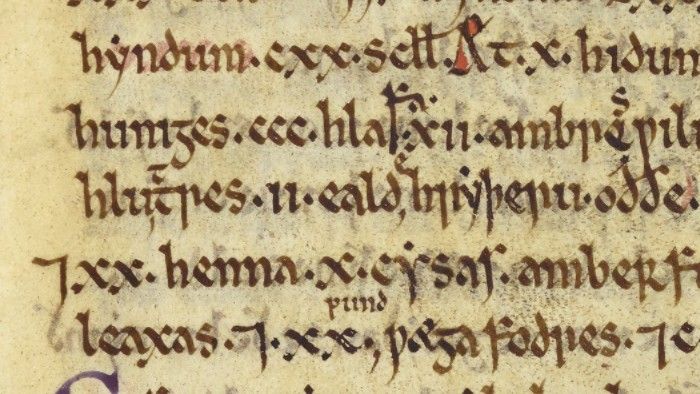 hyndum · cxx · scll̄. Æt · x · hidum
huniges · ccc · hlafa · xii · ambre
hluttres · ii · eald hryþeru · oððe ·
⁊ xx · henna · x · cysas · amber f
pund
leaxas · ⁊ · xx · pæga fodres · ⁊ e